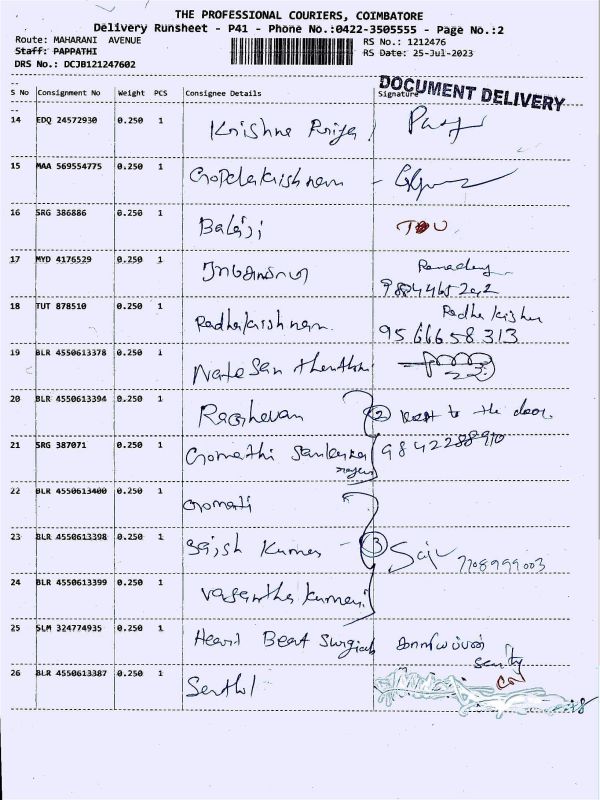 THE PROFESSIONAL COURIERS, COIMBATORE
Delivery Runsheet - P41 - Phone No.:0422-3505555 - Page No.:2
Route: MAHARANI AVENUE RS No.: 1212476
Staff: PAPPATHI RS Date: 25-Jul-2023
DRS No.: DCJB121247602
DOCUMENT DELIVERY
S No Consignment No Weight PCS Consignee Details Signature
14 EDQ 24572930 0.250 1 Krishna Priya
15 MAA 569554775 0.250 1 Gopalakrishnan
16 SRG 386886 0.250 1 Balaji
17 MYD 4176529 0.250 1
18 TUT 878510 0.250 1 Radhakrishnan Radha krishn
95 666 58 313
19 BLR 4550613378 0.250 1 Natesan
20 BLR 4550613394 0.250 1 Raghavan 2 kept to the door
21 SRG 387071 0.250 1 Gomathi Sankara 9842288910
22 BLR 4550613400 0.250 1 Gomati
23 BLR 4550613398 0.250 1 Satish Kumar - 3 7708999003
24 BLR 4550613399 0.250 1 Vasantha kumari
25 SLM 324774935 0.250 1 Heart Beat Surgicals
26 BLR 4550613387 0.250 1 Senthil